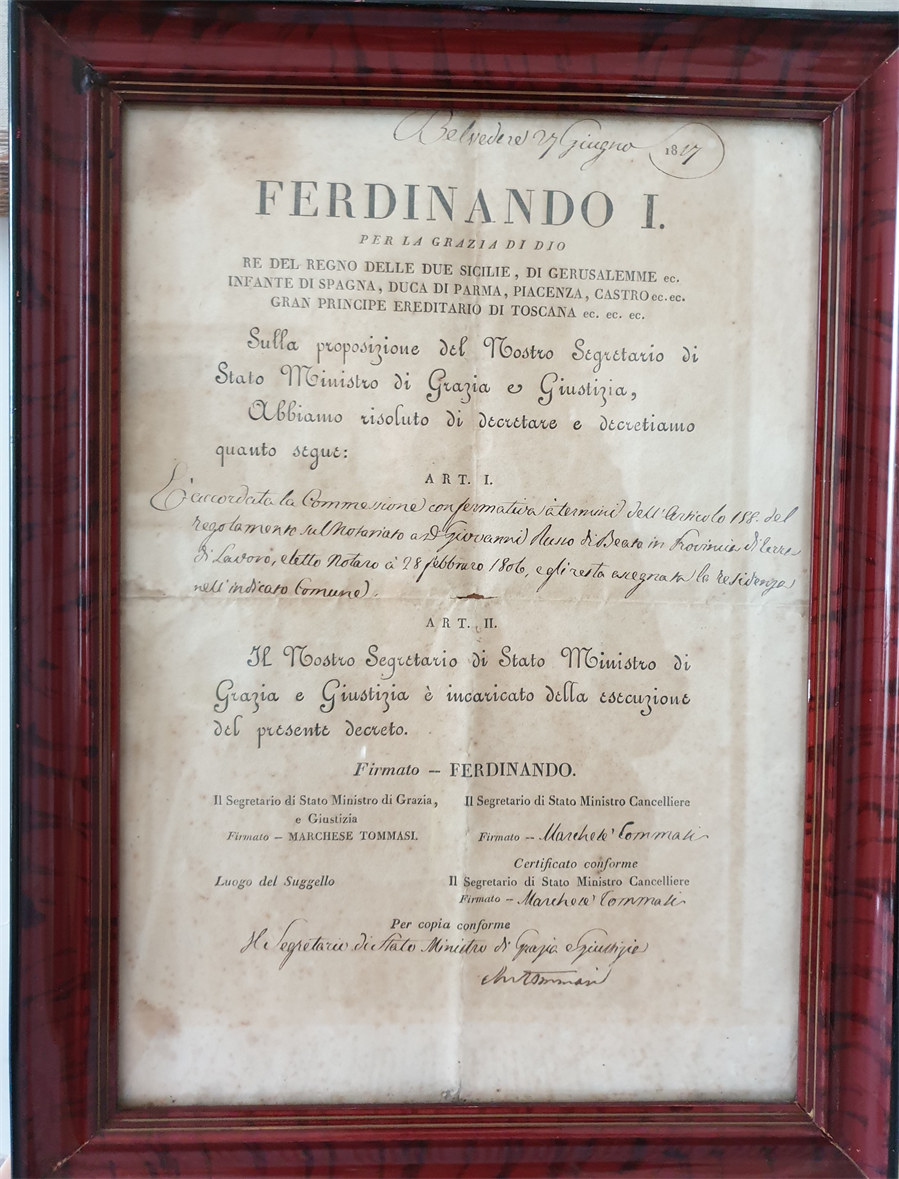 Belvedere 27 Giugno 1817
FERDINANDO I.
PER LA GRAZIA DI DIO
RE DEL REGNO DELLE DUE SICILIE, DI GERUSALEMME ec.
INFANTE DI SPAGNA, DUCA DI PARMA, PIACENZA, CASTRO ec. ec.
GRAN PRINCIPE EREDITARIO DI TOSCANA ec. ec. ec.
Sulla proposizione del Nostro Segretario di
Stato Ministro di Grazia e Giustizia,
Abbiamo risoluto di decretare e decretiamo
quanto segue:
ART. I.
E' accordata la Commessione confermativa a' termini dell' Articolo 158. del
regolamento sul Notariato a D. Giovanni Russo di in Provincia di Terra
di Lavoro, eletto Notaro a 28 febbraro 1806, e gli resta assegnata la residenza
nell' indicato Comune.
ART. II.
Il Nostro Segretario di Stato Ministro di
Grazia e Giustizia è incaricato della esecuzione
del presente decreto.
Firmato — FERDINANDO.
Il Segretario di Stato Ministro di Grazia,
e Giustizia
Firmato — MARCHESE TOMMASI.
Il Segretario di Stato Ministro Cancelliere
Firmato — Marchese Tommasi
Certificato conforme
Luogo del Suggello
Il Segretario di Stato Ministro Cancelliere
Firmato — Marchese Tommasi
Per copia conforme
Il Segretario di Stato Ministro di Grazia e Giustizia
Tommasi